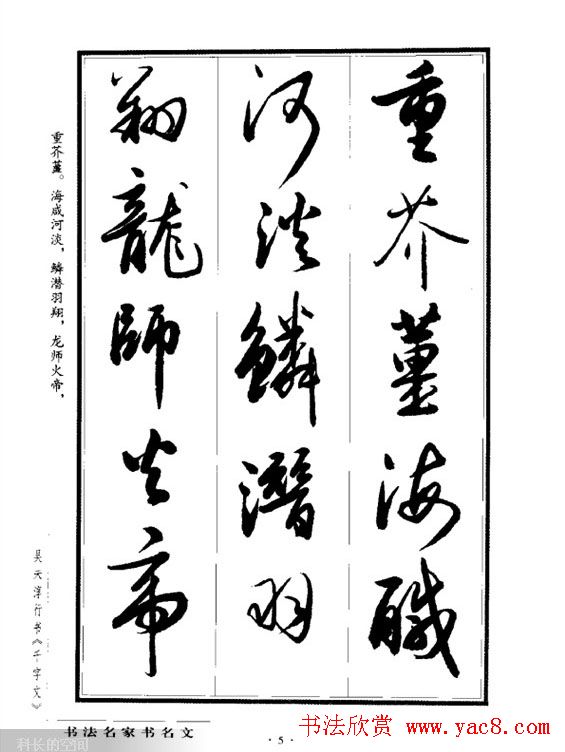 重芥薑海鹹
河淡鱗潛羽
翔龍師火帝
重芥薑。海咸河淡，鳞潜羽翔，龙师火帝，
吴天淳行书《千字文》
书法名家书名文
·5·
科长的空间
书法欣赏 www.yac8.com